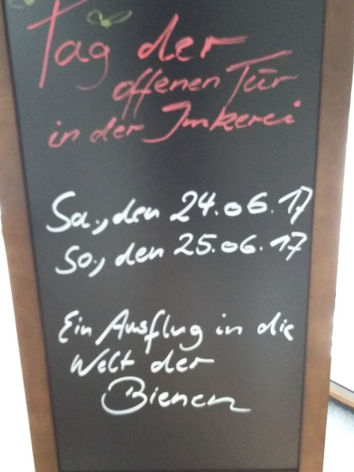 Tag der
offenen Tür
in der Imkerei
Sa., den 24.06.17
So., den 25.06.17
Ein Ausflug in die
Welt der
Bienen